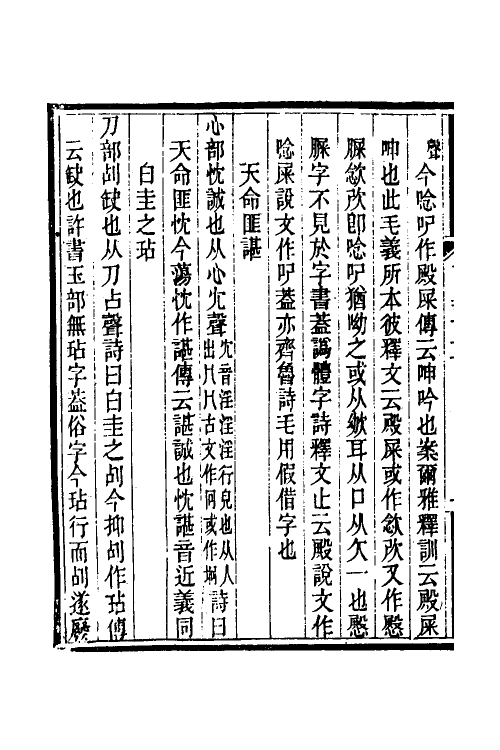 聲今唸㕧作殿屎傳云呻吟也案爾雅釋訓云殿屎
呻也此毛義所本彼釋文云殿屎或作欿㰦又作慇
脲欿㰦卽唸㕧猶呦之或从欸耳从口从欠一也慇
脲字不見於字書葢譌體字詩釋文止云殿說文作
唸屎說文作㕧葢亦齊魯詩毛用假借字也
天命匪諶
心部忱誠也从心冘聲冘音淫淫淫行皃也从人出冂冂古文作冋或作坰詩曰
天命匪忱今蕩忱作諶傳云諶誠也忱諶音近義同
白圭之玷
刀部㓠缺也从刀占聲詩曰白圭之㓠今抑㓠作玷傳
云缺也許書玉部無玷字葢俗字今玷行而㓠遂廢